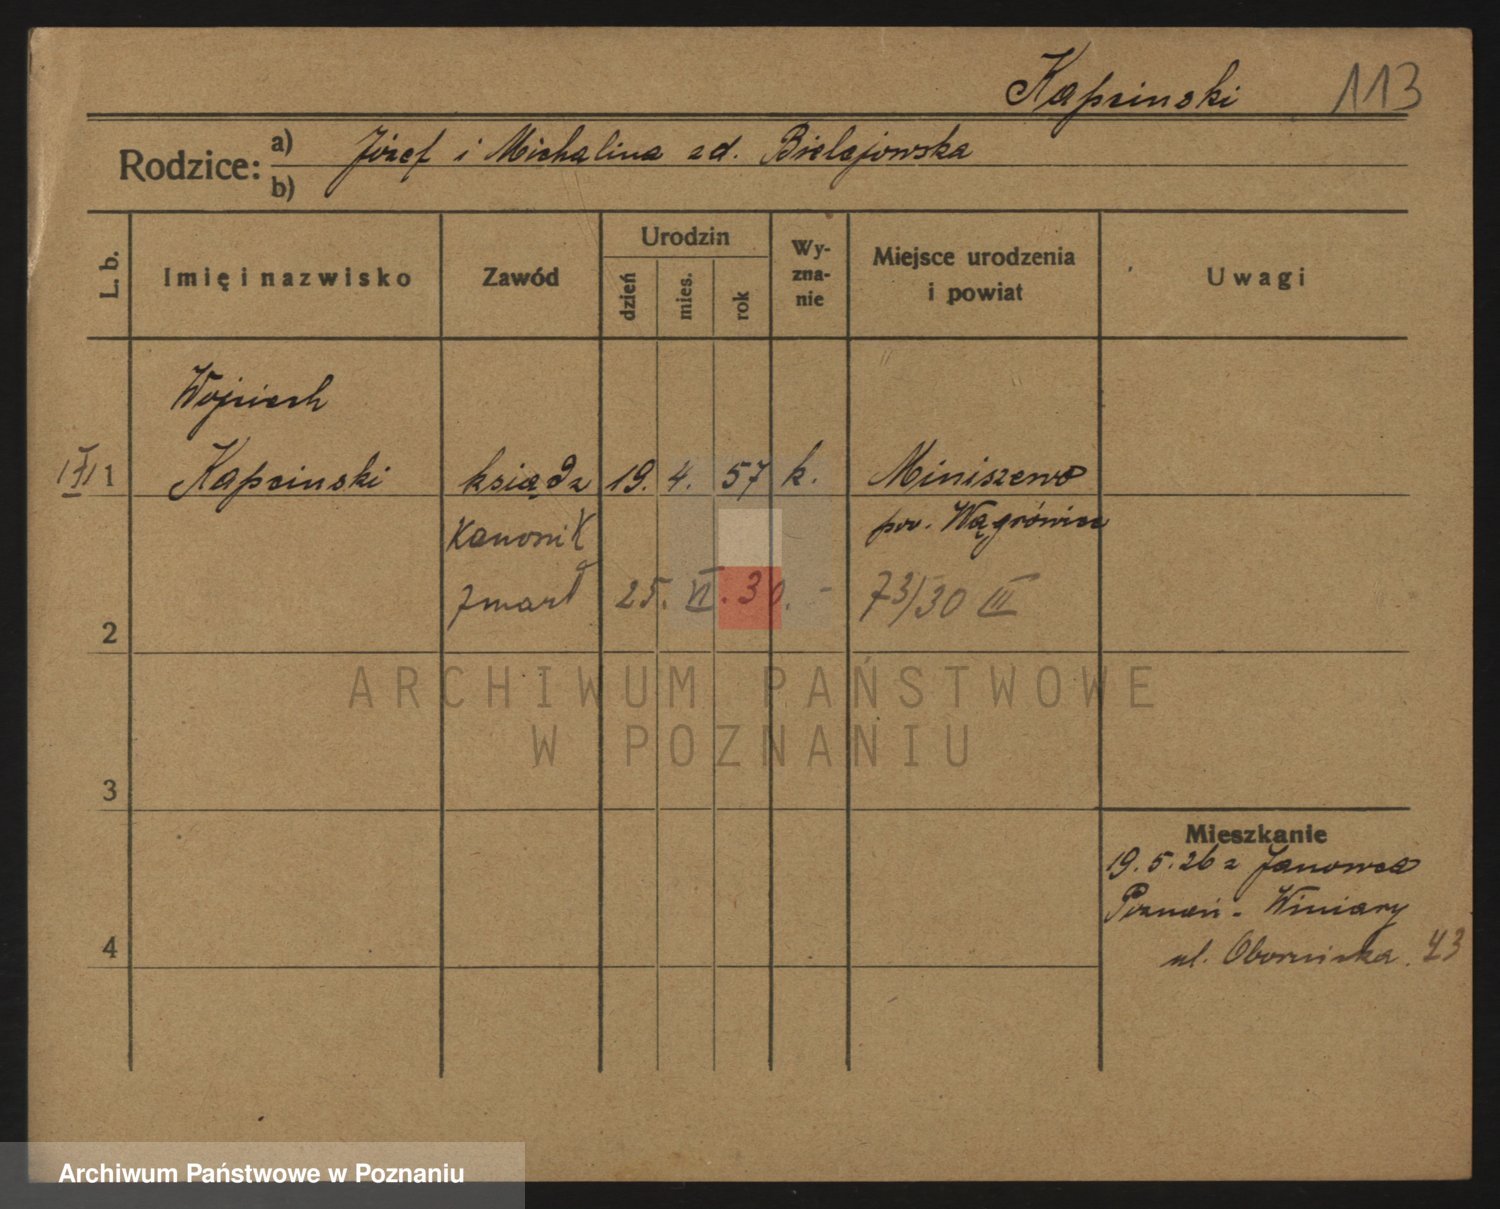 Kapcinski 113
Rodzice: a) Józef i Michalina zd. Bielejowska
b)
L. b. Imię i nazwisko Zawód Urodzin dzień mies. rok Wyznanie Miejsce urodzenia i powiat Uwagi
Wojciech
1 Kapcinski ksiądz 19. 4. 57 k. Miniszewo
kanonik pow. Wągrówiec
2 zmarł 25. VI. 30. - 73/30 III
ARCHIWUM PAŃSTWOWE
W POZNANIU
3
Mieszkanie
19. 5. 26 z Janowca
Poznań - Winiary
4 ul. Obornicka 43
Archiwum Państwowe w Poznaniu